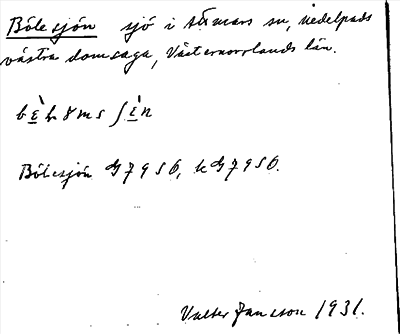 Bölesjön sjö i Attmars sn, Medelpads
västra domsaga, Västernorrlands län.
Bölesjön G 7956, k G 7956.
Valter Jansson 1931.